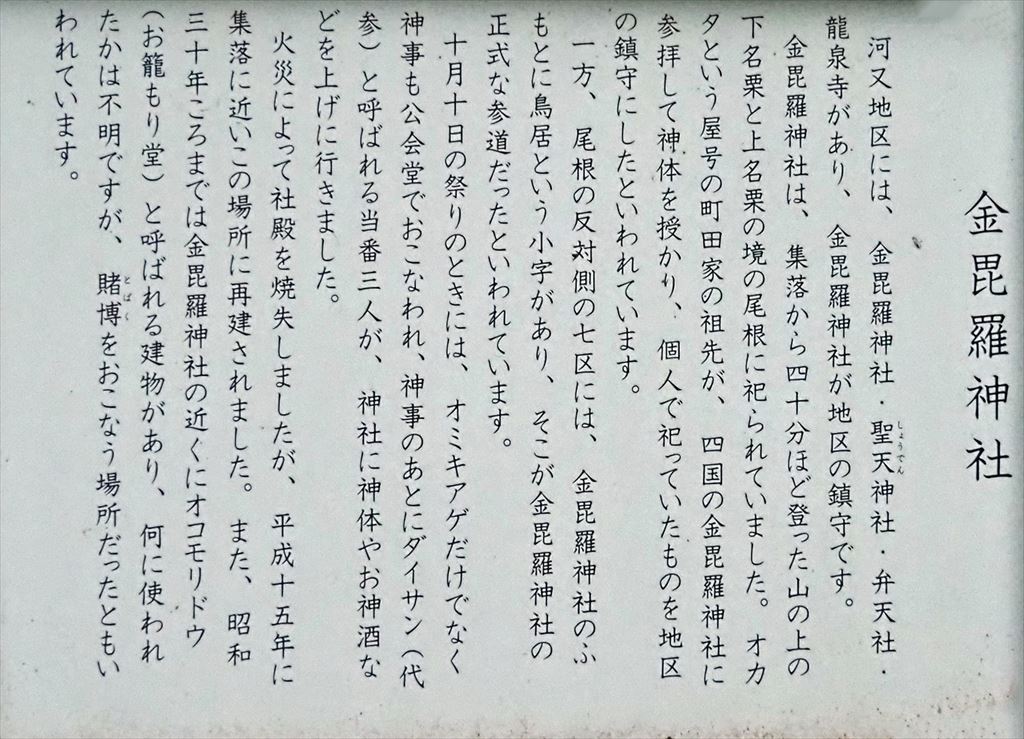 金毘羅神社
河又地区には、金毘羅神社・聖天神社・弁天社・
しょうでん
龍泉寺があり、金毘羅神社が地区の鎮守です。
金毘羅神社は、集落から四十分ほど登った山の上の
下名栗と上名栗の境の尾根に祀られていました。オカ
タという屋号の町田家の祖先が、四国の金毘羅神社に
参拝して神体を授かり、個人で祀っていたものを地区
の鎮守にしたといわれています。
一方、尾根の反対側の七区には、金毘羅神社のふ
もとに鳥居という小字があり、そこが金毘羅神社の
正式な参道だったといわれています。
十月十日の祭りのときには、オミキアゲだけでなく
神事も公会堂でおこなわれ、神事のあとにダイサン（代
参）と呼ばれる当番三人が、神社に神体やお神酒な
どを上げに行きました。
火災によって社殿を焼失しましたが、平成十五年に
集落に近いこの場所に再建されました。また、昭和
三十年ころまでは金毘羅神社の近くにオコモリドウ
（お籠もり堂）と呼ばれる建物があり、何に使われ
たかは不明ですが、賭博をおこなう場所だったともい
とばく
われています。